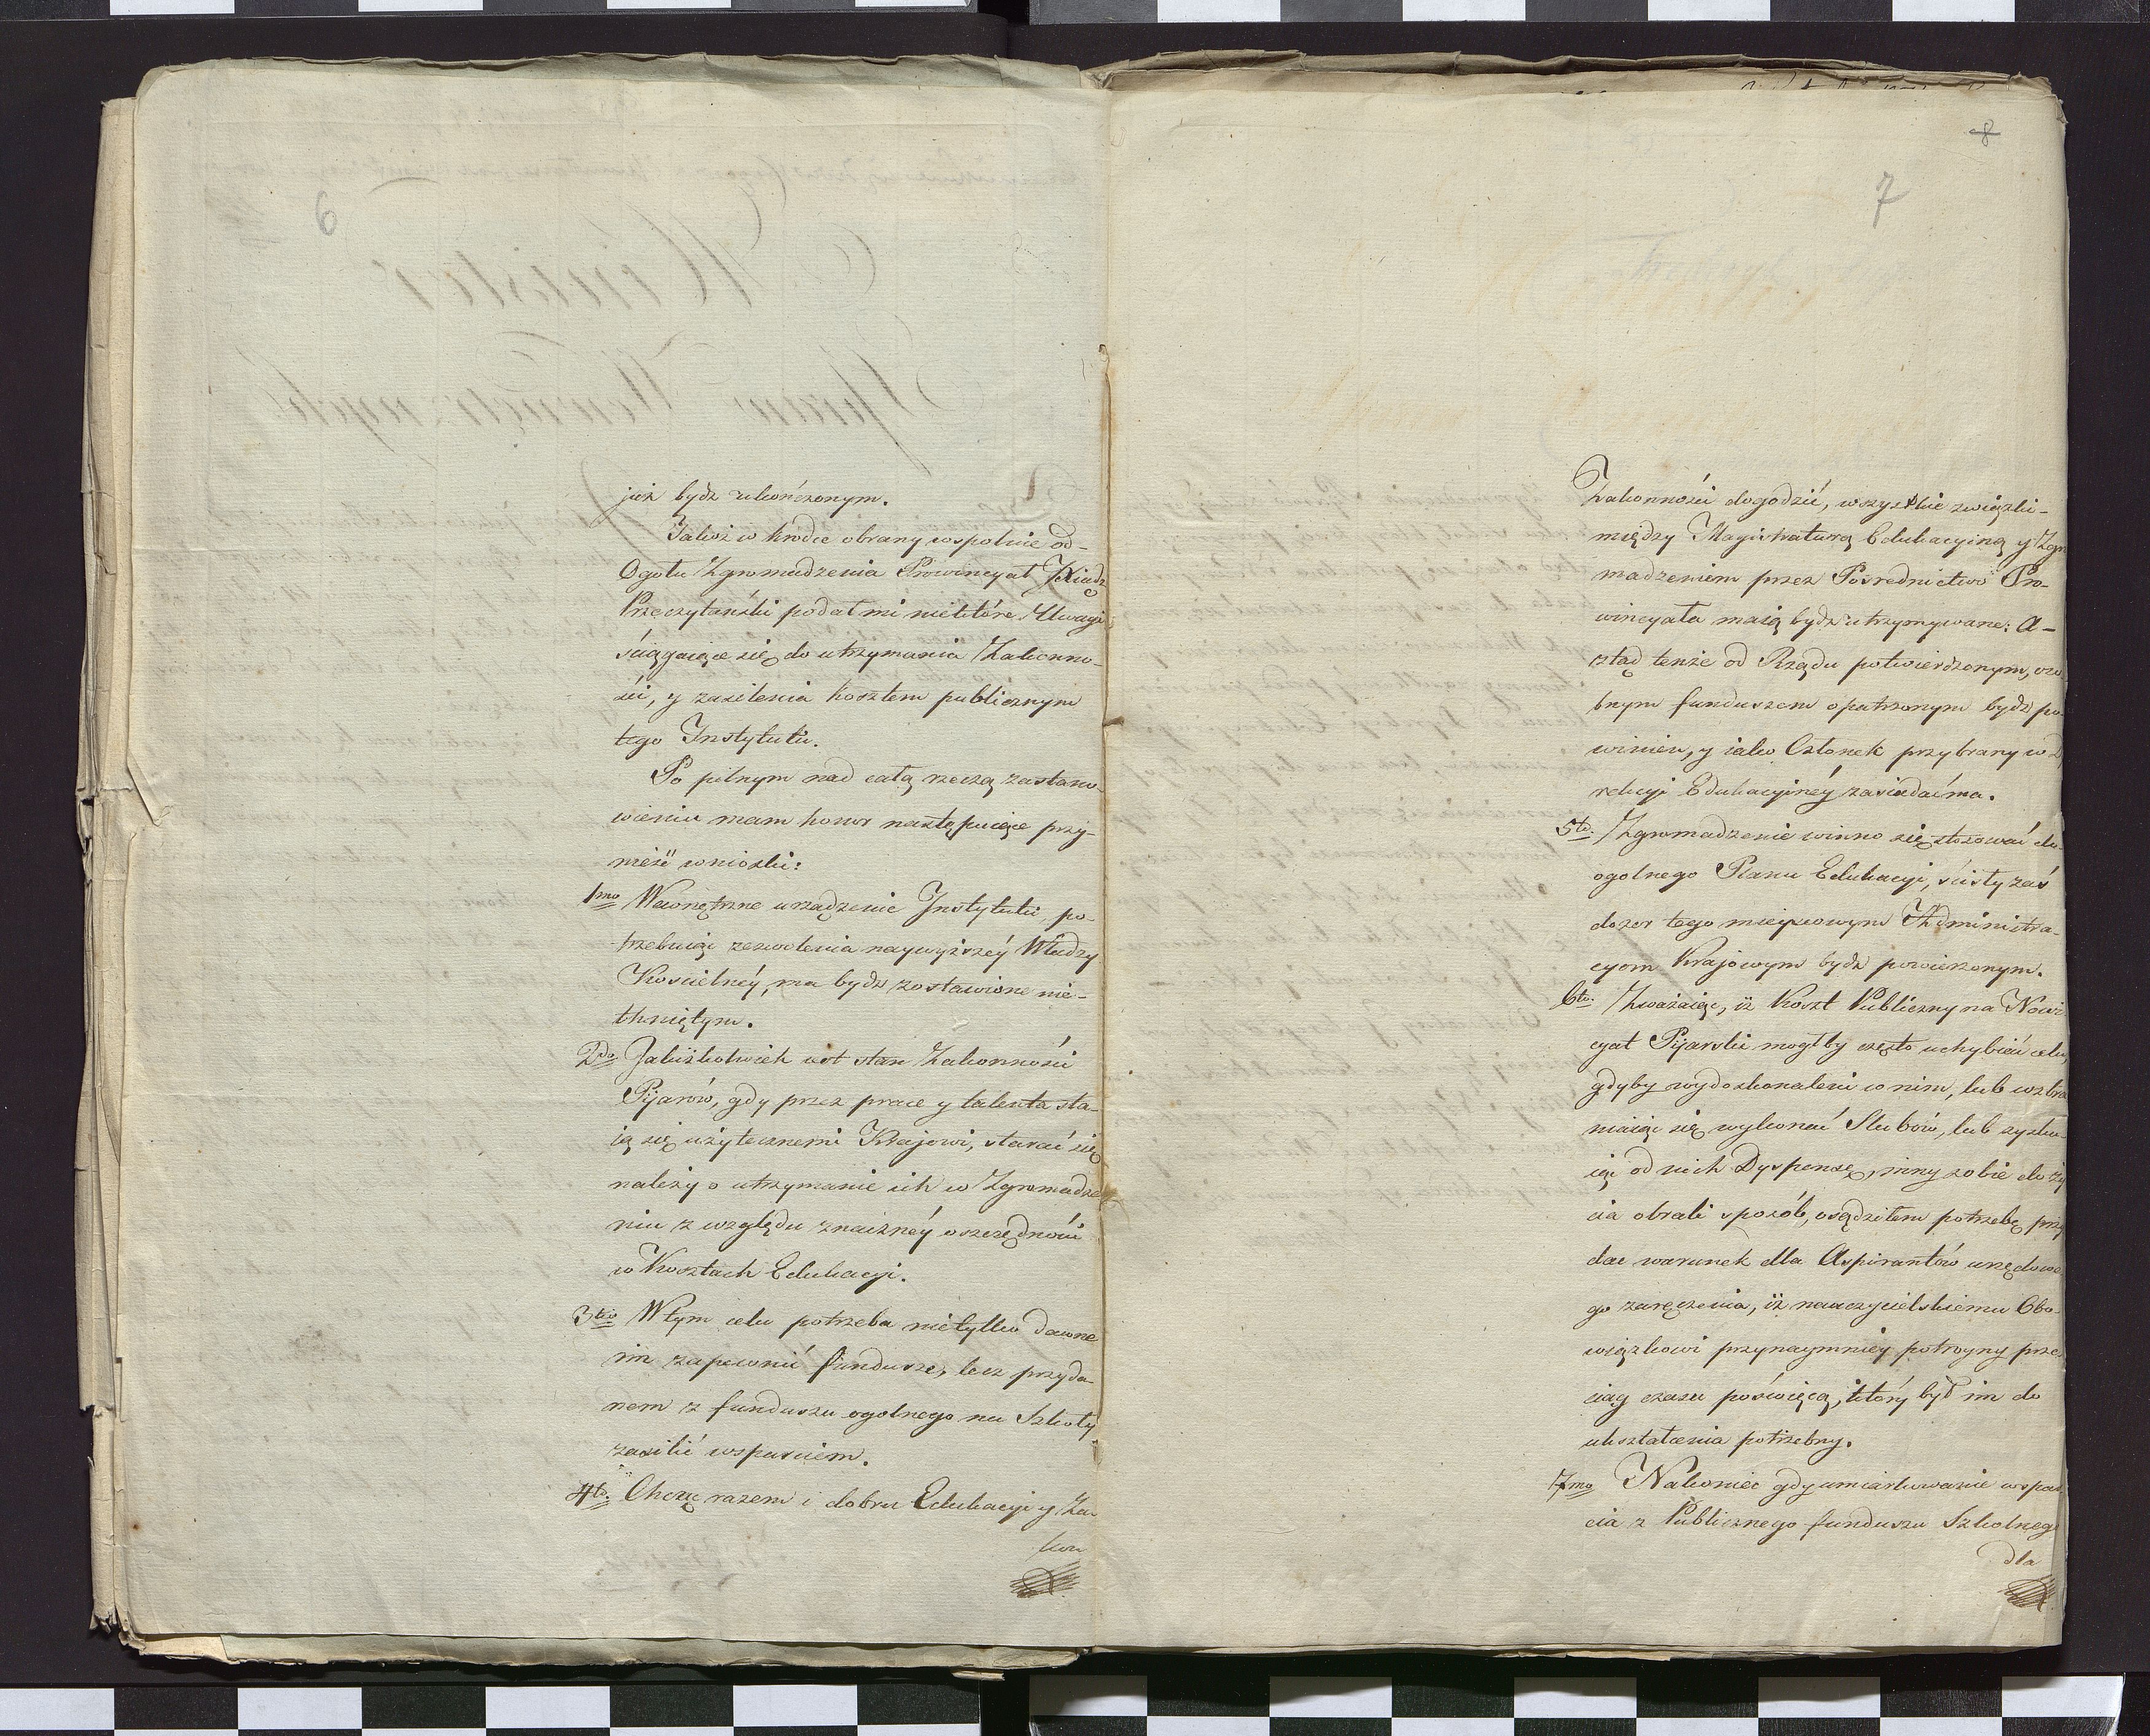 6
już bydz ukończonym.
Jakoż w krodce obrany wspolnie od-
Ogołu Zgromadzenia Prowincyał Xiądz
Przeczytański podał mi niektóre Uwagi
ściągaiące się do utrzymania Zakonno-
ści, y zasilenia kosztem publicznym
tego Instytutu.
Po pilnym nad całą rzeczą zastano-
wieniu mam honor następuiące przy-
nieść wnioski:
1mo Wewnętrzne urządzenie Instytutu, po-
trzebuiąc zezwolenia naywyższéy Władzy
Kościelnéy, ma bydz zostawione nie-
tkniętym.
2do Jakiżkolwiek iest stan Zakonności
Pijarów, gdy przez prace y talenta sta-
ią się użytecznemi Krajowi, starać się
należy o utrzymanie ich w Zgromadze
niu z względu znaiznéy oszczędności
w Kosztach Edukacyi.
3tio W tym celu potrzeba nietylko dawne
im zapewnić fundusze, lecz przyda-
nem z funduszu ogolnego na Szkoły
zasilić wsparciem.
4to. Chcąc razem i dobru Edukacyi y Za
kon
8
7
Zakonności dogodzić, wszystkie związki-
między Magistraturą Edukacyiną y Zgro
madzeniem przez Pośrednictwo Pro-
wincyała maią bydz utrzymywane: A-
ztąd tenże od Rządu potwierdzonym, oso
bnym funduszem opatrzonym bydz po-
winien, y iako Członek przybrany w D
rekcyi Edukacyinéy zasiadać ma.
5to. Zgromadzenie winno się stosować do
ogolnego Planu Edukacyi, ścisły zaś
dozor tego mieyscowym Administra-
cyom Krajowym bydz powierzonym.
6to. Zważaiąc, iż Koszt Publiczny na Nowi
cyat Pijarski mogłby często uchybić celu,
gdyby wydoskonaleni w nim, lub wzbra
niaiąc się wykonać Slubów, lub zysku-
iąc od nich Dyspensę, inny sobie do ży
cia obrali sposób, osądziłem potrzebę przy
dac warunek dla Aspirantów urzędowe
go zaręczenia, iż nauczycielskiemu Obo-
wiązkowi przynaymniey potroyny prze
ciąg czasu poświęcą, który był im do
ukształcenia potrzebny.
7mo Nakoniec gdy umiarkowanie wspar
cia z Publicznego funduszu Szkolnego
dla